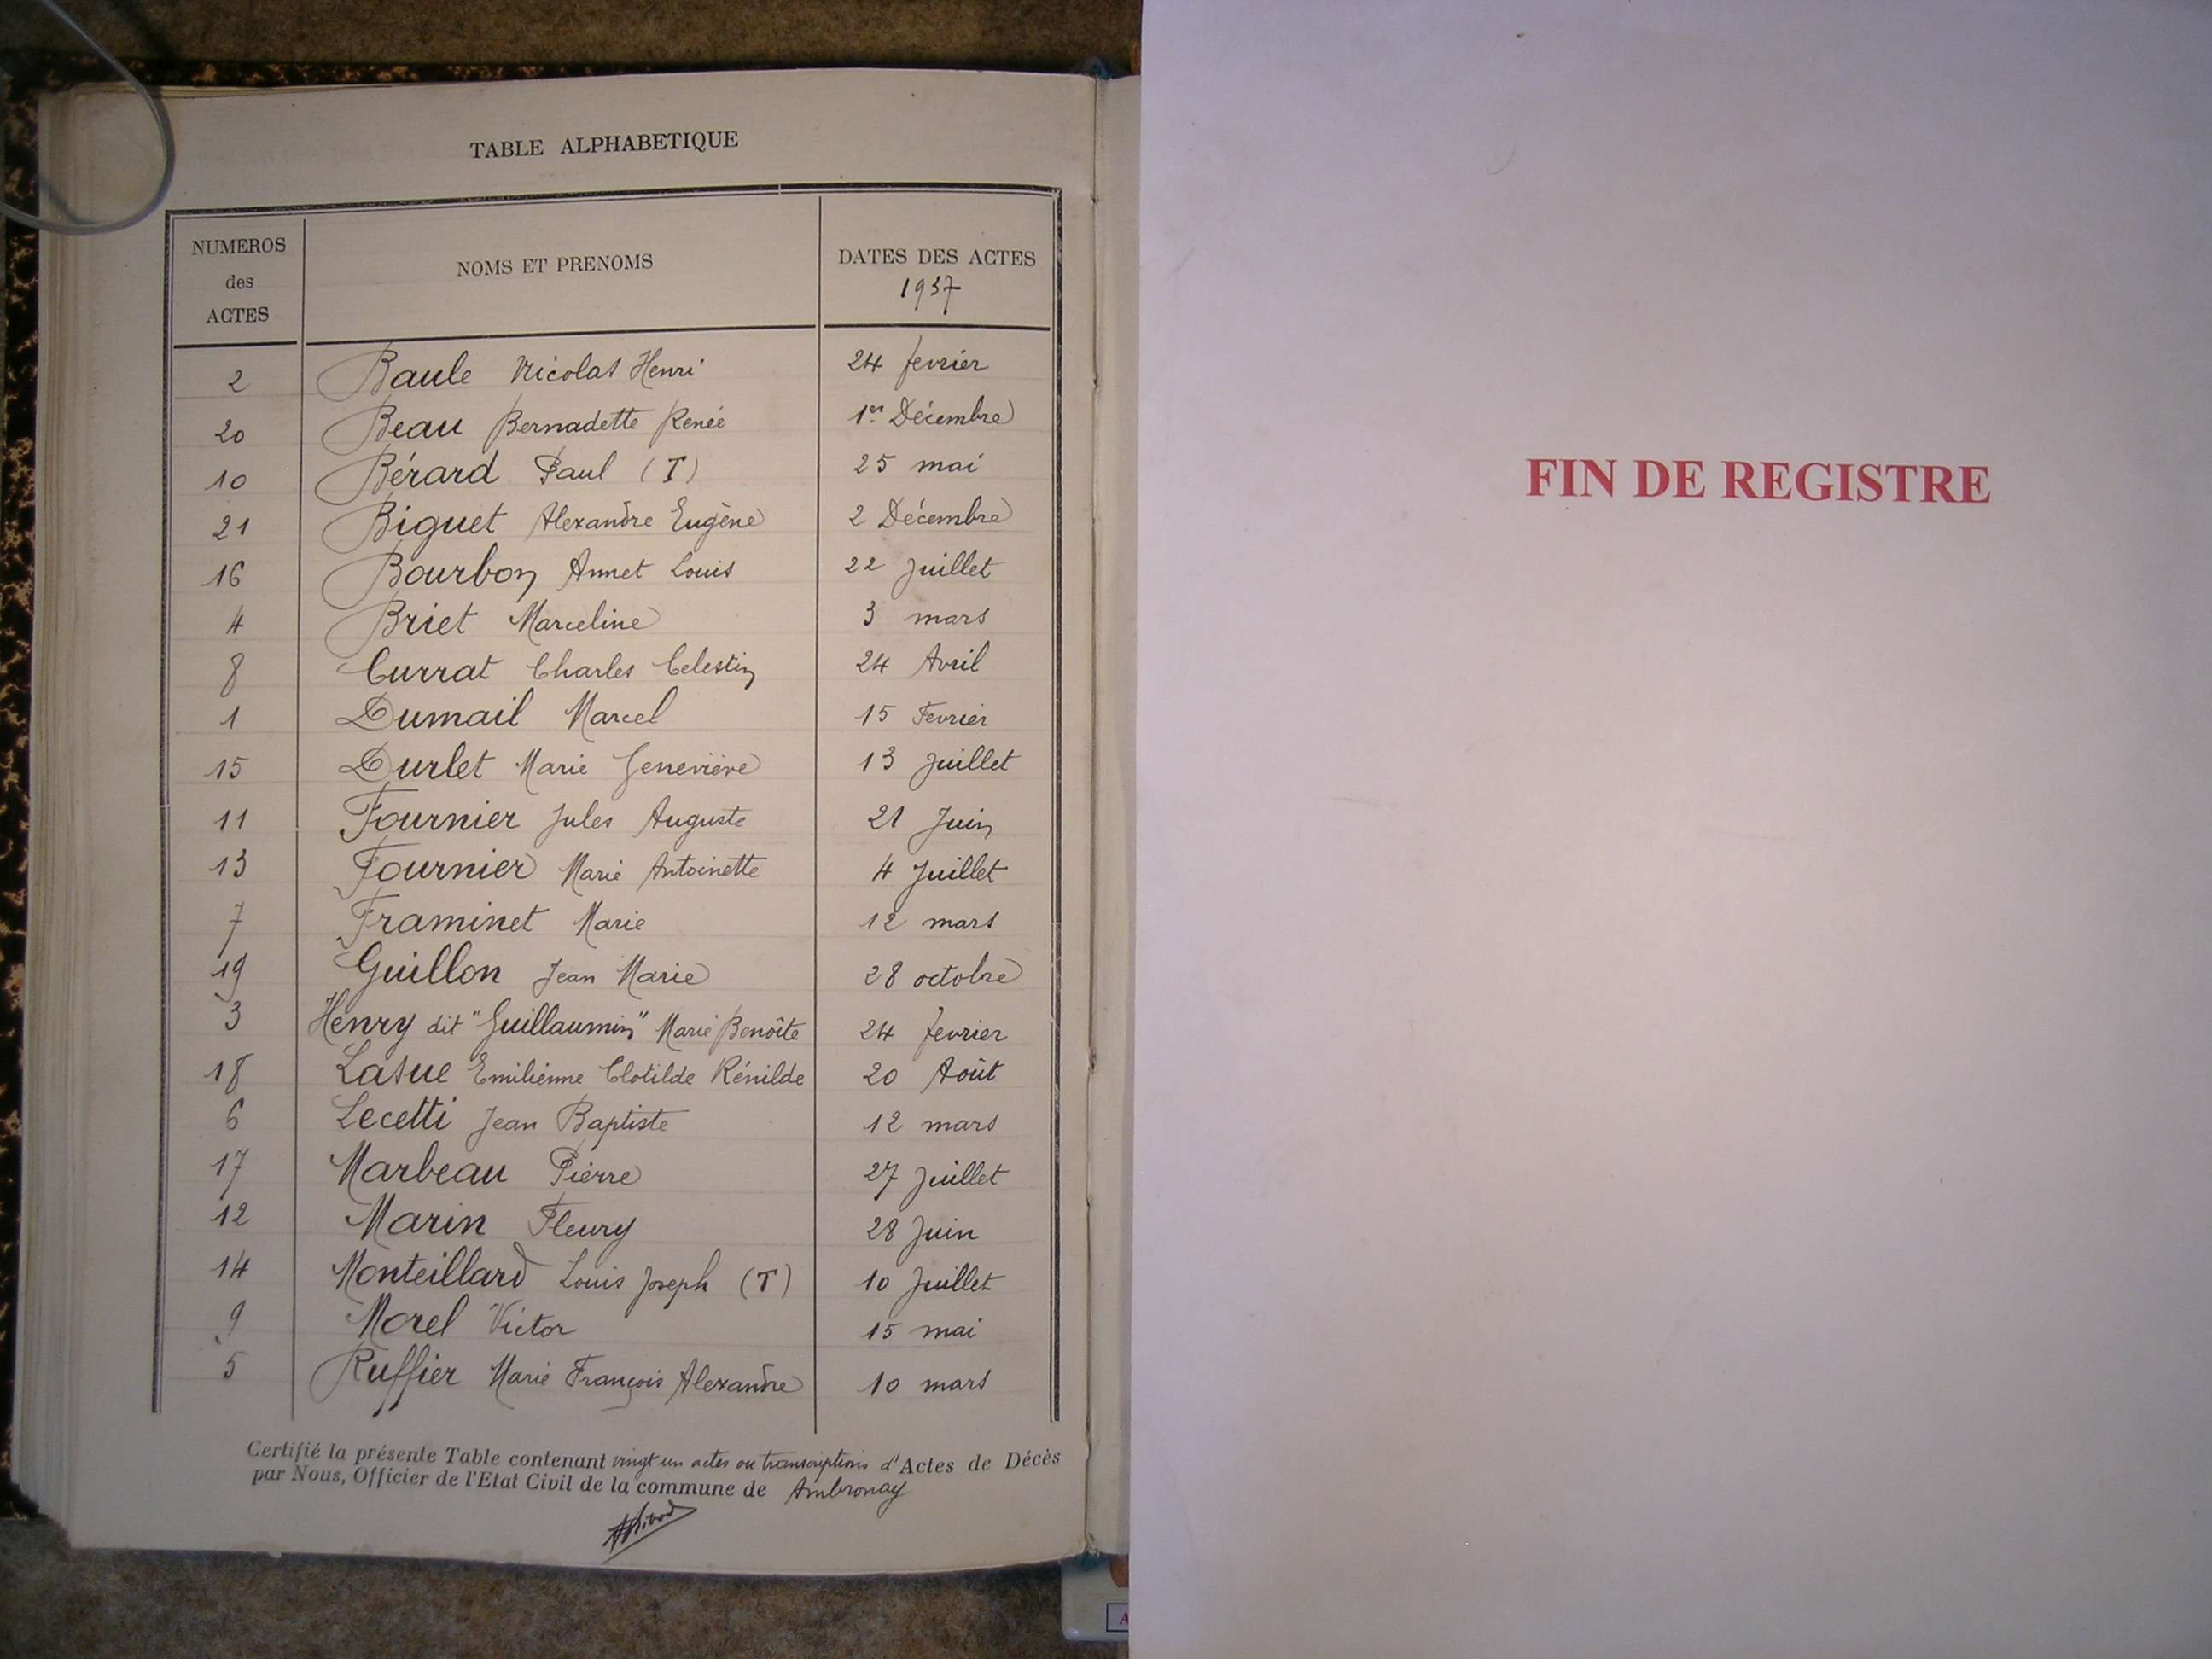 TABLE ALPHABETIQUE
NUMEROS des ACTES
NOMS ET PRENOMS
DATES DES ACTES 1937
2 Baule Nicolas Henri 24 fevrier
20 Beau Bernadette Renée 1er Décembre
10 Bérard Paul (T) 25 mai
21 Biguet Alexandre Eugène 2 Décembre
16 Bourbon Annet Louis 22 Juillet
4 Briet Marceline 3 mars
8 Currat Charles Celestin 24 Avril
1 Dumail Marcel 15 Fevrier
15 Durlet Marie Geneviève 13 Juillet
11 Fournier Jules Auguste 21 Juin
13 Fournier Marie Antoinette 4 Juillet
7 Framinet Marie 12 mars
19 Guillon Jean Marie 28 octobre
3 Henry dit "Guillaumin" Marie Benoîte 24 fevrier
18 Lasue Emilienne Clotilde Rénilde 20 Août
6 Lecetti Jean Baptiste 12 mars
17 Marbeau Pierre 27 Juillet
12 Marin Fleury 28 Juin
14 Monteillard Louis Joseph (T) 10 Juillet
9 Morel Victor 15 mai
5 Ruffier Marie François Alexandre 10 mars
Certifié la présente Table contenant vingt un actes ou transcriptions d'Actes de Décès
par Nous, Officier de l'Etat Civil de la commune de Ambronay
FIN DE REGISTRE